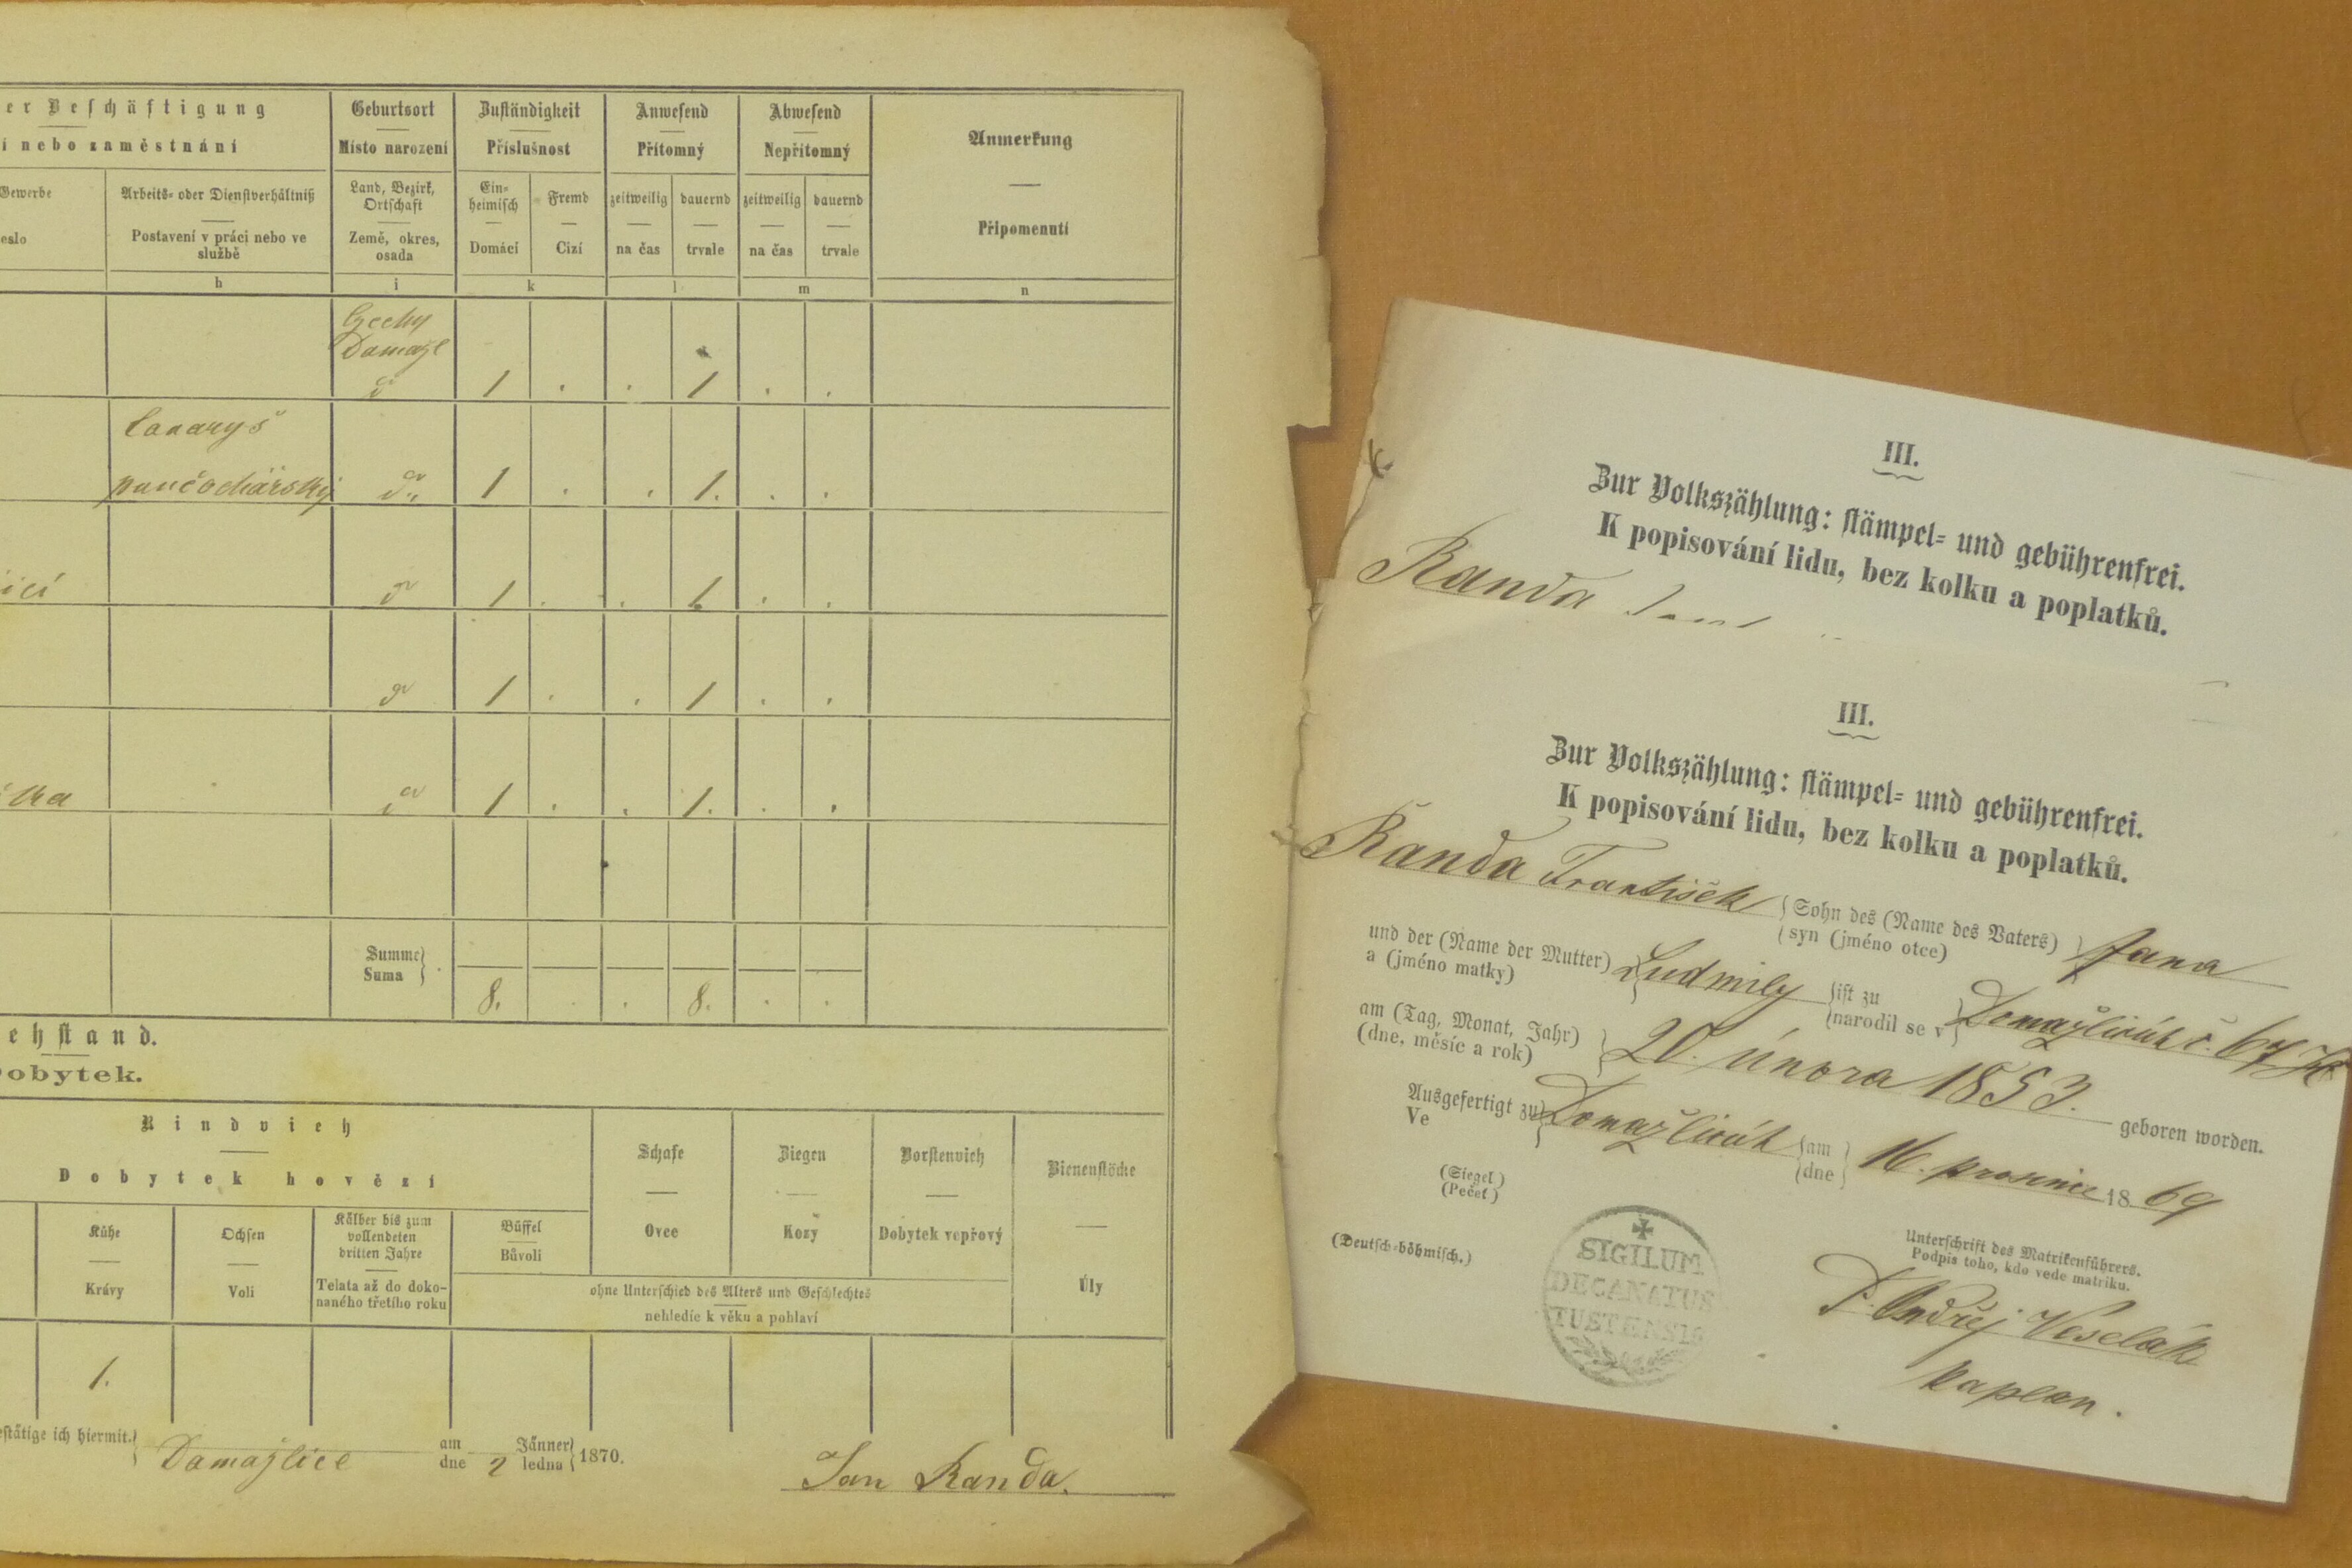 er Beschäftigung
í nebo zaměstnání
Geburtsort
Místo narození
Zuständigkeit
Příslušnost
Anwesend
Přítomný
Abwesend
Nepřítomný
Anmerkung
Připomenutí
Gewerbe
eslo
Arbeits- oder Dienstverhältniß
Postavení v práci nebo ve
službě
Land, Bezirk,
Ortschaft
Země, okres,
osada
Ein-
heimisch
Domácí
Fremd
Cizí
zeitweilig
na čas
dauernd
trvale
zeitweilig
na čas
dauernd
trvale
h i k l m n
Čechy
Domažl
1 . . 1 . .
pančochářský
1 . . 1. . .
ící
1 . . 1 . .
1 . . 1 . .
čka
1 . . 1. . .
Summe
Suma
8. . . 8. . .
ehstand.
obytek.
Rindvieh
Dobytek hovězí
Kühe
Krávy
Ochsen
Voli
Kälber bis zum
vollendeten
dritten Jahre
Telata až do doko-
naného třetího roku
Büffel
Bůvoli
Schafe
Ovce
Ziegen
Kozy
Borstenvieh
Dobytek vepřový
ohne Unterschied des Alters und Geschlechtes
nehledíc k věku a pohlaví
Bienenstöcke
Úly
1.
estätige ich hiermit.
Damažlice
am
dne
2
Jänner
ledna
1870.
Jan Randa.
III.
Zur Volkszählung: stämpel- und gebührenfrei.
K popisování lidu, bez kolku a poplatků.
Randa
III.
Zur Volkszählung: stämpel- und gebührenfrei.
K popisování lidu, bez kolku a poplatků.
Randa František
Sohn des (Name des Vaters)
syn (jméno otce)
Jana
und der (Name der Mutter)
a (jméno matky)
Ludmily
ist zu
narodil se v
Domažlicích č. 67
am (Tag, Monat, Jahr)
(dne, měsíc a rok)
20. února 1853.
geboren worden.
Ausgefertigt zu
Ve
Domažlicích
am
dne
16. prosince 1869
(Siegel)
(Pečeť)
(Deutsch-böhmisch.)
SIGILUM
DECANATUS
TUSTENSIS
Unterschrift des Matrikenführers.
Podpis toho, kdo vede matriku.
P. Ondřej Veselák
kaplan.